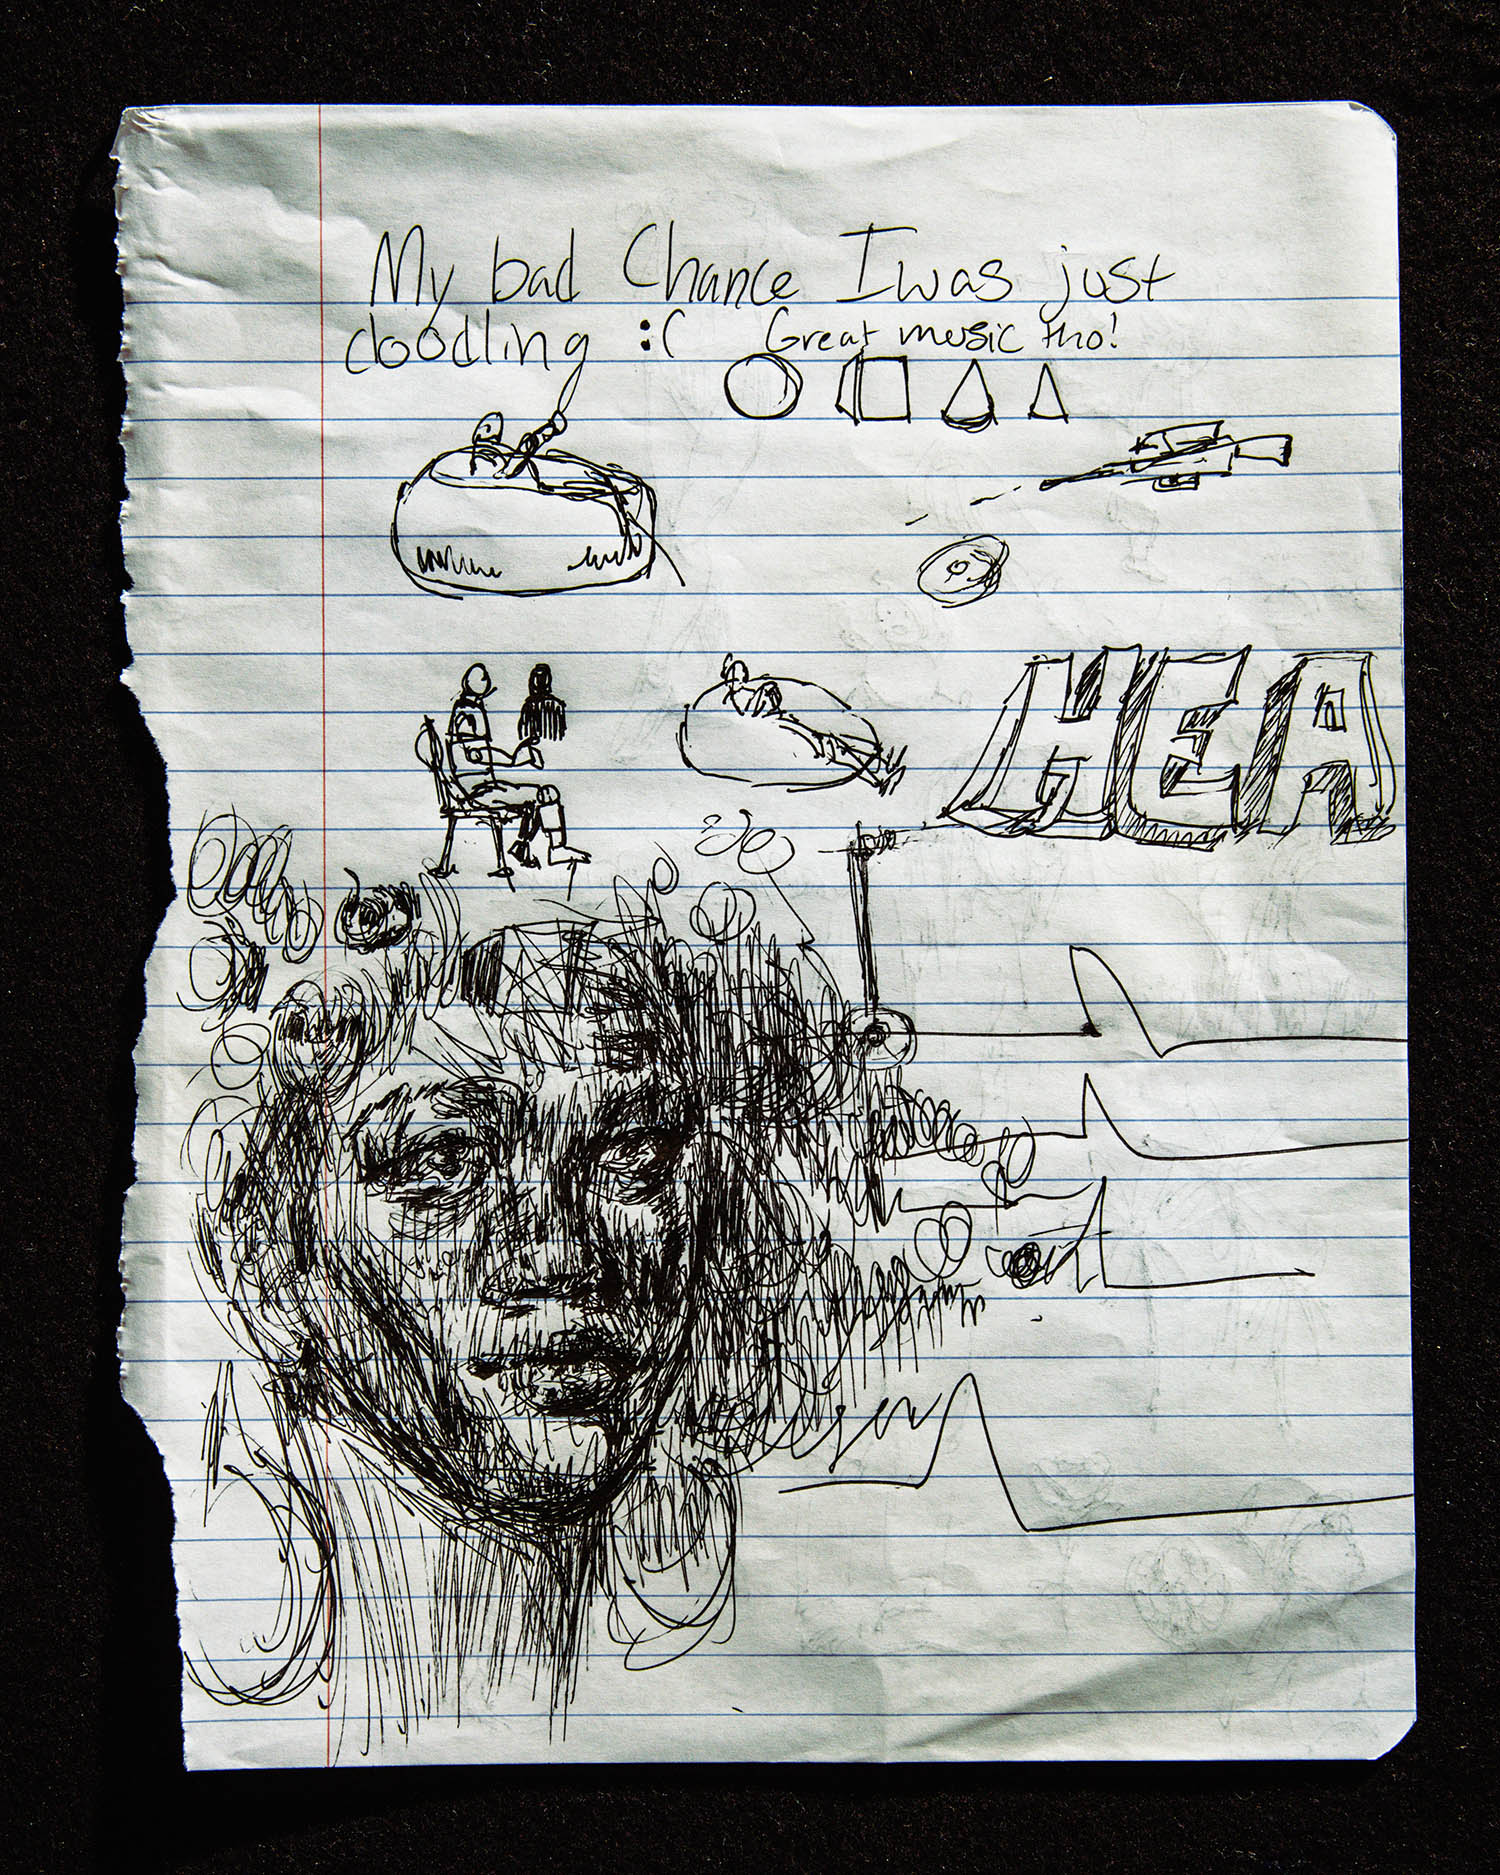 My bad Chance I was just
doodling :(
Great music tho!
HEA